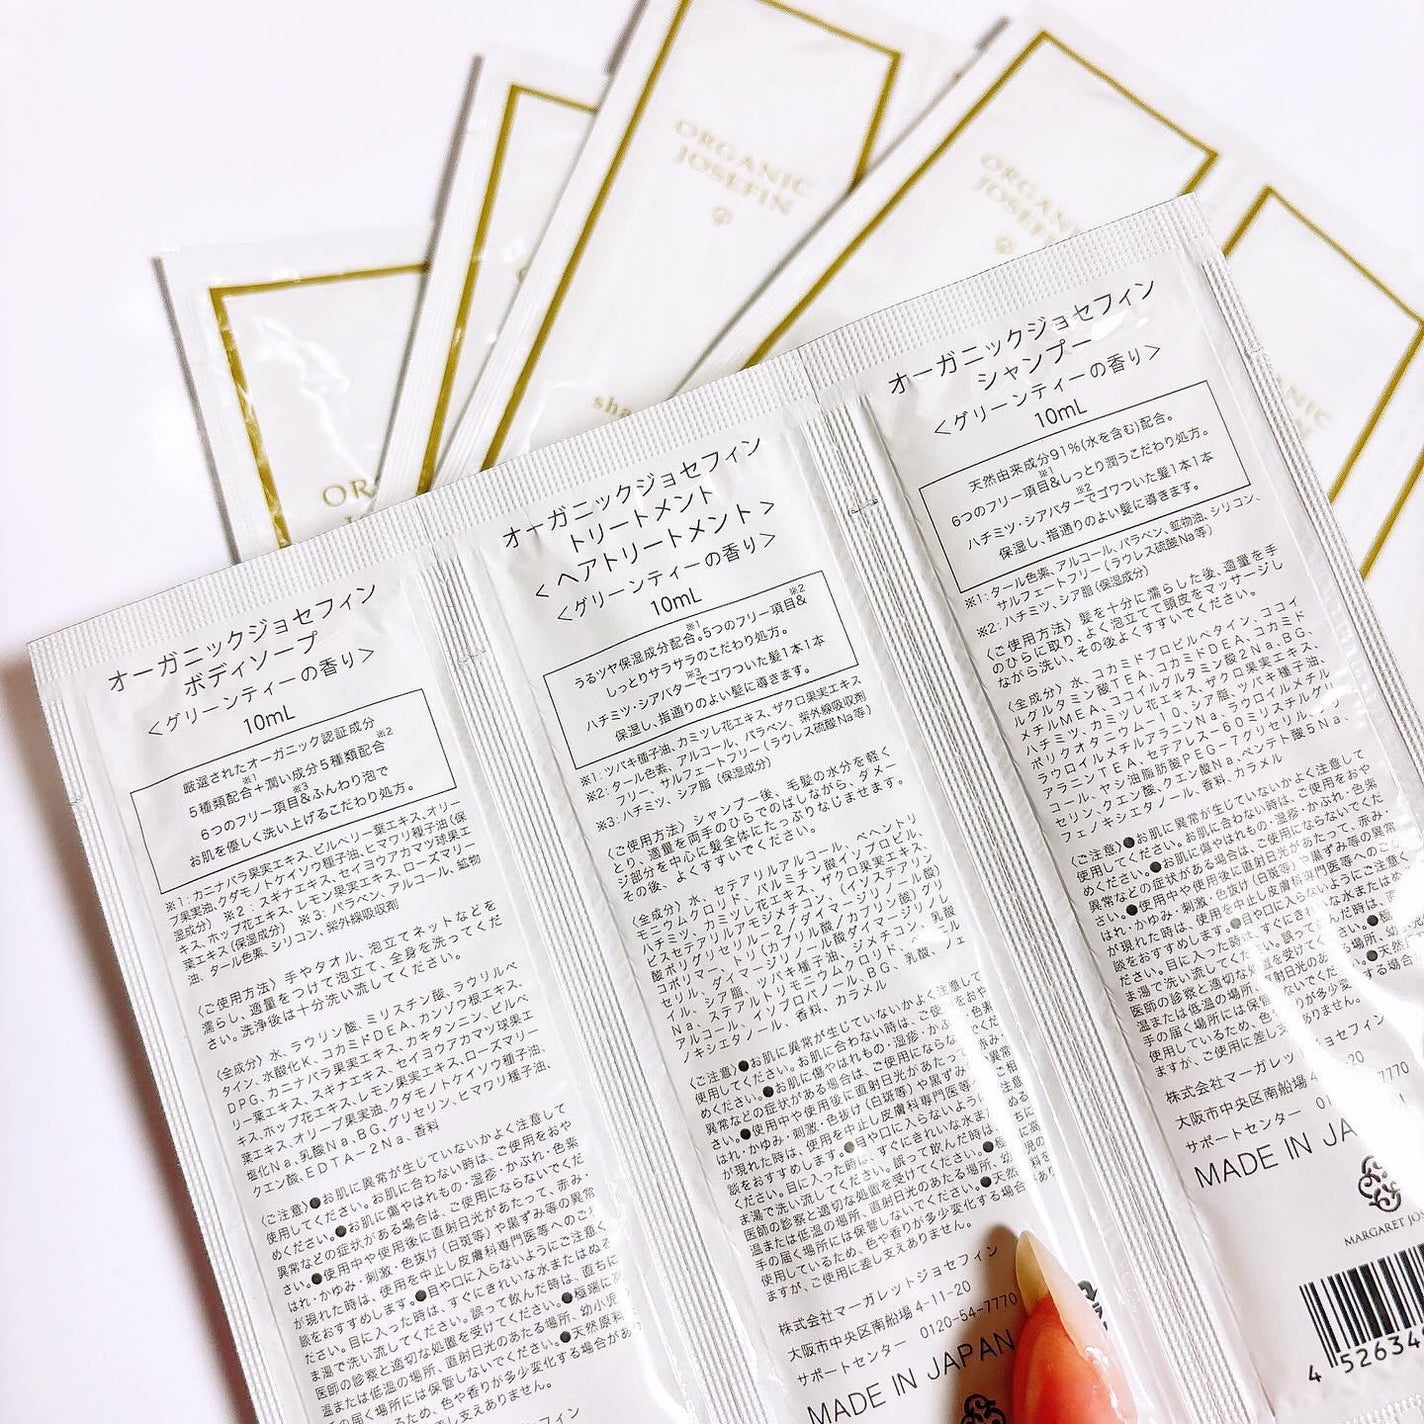 ORGANIC
JOSEFIN
ORGANIC
JOSEFIN
sha
オーガニックジョセフィン
ボディソープ
<グリーンティーの香り>
10mL
厳選されたオーガニック認証成分
5種類配合※1+潤い成分5種類配合※2
6つのフリー項目※3&ふんわり泡で
お肌を優しく洗い上げるこだわり処方。
※1:カニナバラ果実エキス、ビルベリー葉エキス、オリー
ブ果実油、クダモノトケイソウ種子油、ヒマワリ種子油(保
湿成分) ※2:スギナエキス、セイヨウアカマツ球果エ
キス、ホップ花エキス、レモン果実エキス、ローズマリー
葉エキス(保湿成分) ※3:パラベン、アルコール、鉱物
油、タール色素、シリコン、紫外線吸収剤
〈ご使用方法〉手やタオル、泡立てネットなどを
濡らし、適量をつけて泡立て、全身を洗ってくだ
さい。洗浄後は十分洗い流してください。
〈全成分〉水、ラウリン酸、ミリスチン酸、ラウリルベ
タイン、水酸化K、コカミドDEA、カンゾウ根エキス、
DPG、カニナバラ果実エキス、カキタンニン、ビルベ
リー葉エキス、スギナエキス、セイヨウアカマツ球果エ
キス、ホップ花エキス、レモン果実エキス、ローズマリー
葉エキス、オリーブ果実油、クダモノトケイソウ種子油、
塩化Na、乳酸Na、BG、グリセリン、ヒマワリ種子油、
クエン酸、EDTA-2Na、香料
〈ご注意〉●お肌に異常が生じていないかよく注意して
使用してください。お肌に合わない時は、ご使用をおや
めください。●お肌に傷やはれもの・湿疹・かぶれ・色素
異常などの症状がある場合は、ご使用にならないでくだ
さい。●使用中や使用後に直射日光があたって、赤み・
はれ・かゆみ・刺激・色抜け(白斑等)や黒ずみ等の異常
が現れた時は、使用を中止し皮膚科専門医等へのご
談をおすすめします。●目や口に入らないようにご注意く
ださい。目に入った時は、すぐにきれいな水またはぬる
ま湯で洗い流してください。誤って飲んだ時は、直ちに
医師の診察と適切な処置を受けてください。●極端に
温または低温の場所、直射日光のあたる場所、幼小児
手の届く場所には保管しないでください。●天然原料
使用しているため、色や香りが多少変化する場合があ
オーガニックジョセフィン
トリートメント
<ヘアトリートメント>
<グリーンティーの香り>
10mL
うるツヤ保湿成分配合※1。5つのフリー項目※2&
しっとりサラサラのこだわり処方。
ハチミツ・シアバター※3でゴワついた髪1本1本
保湿し、指通りのよい髪に導きます。
※1:ツバキ種子油、カミツレ花エキス、ザクロ果実エキス
※2:タール色素、アルコール、パラベン、紫外線吸収剤
フリー、サルフェートフリー(ラウレス硫酸Na等)
※3:ハチミツ、シア脂(保湿成分)
〈ご使用方法〉シャンプー後、毛髪の水分を軽く
とり、適量を両手のひらでのばしながら、ダメー
ジ部分を中心に髪全体にたっぷりなじませます。
その後、よくすすいでください。
〈全成分〉水、セテアリルアルコール、ベヘントリ
モニウムクロリド、パルミチン酸イソプロピル、
ハチミツ、カミツレ花エキス、ザクロ果実エキス、
ビスセテアリルアモジメチコン、(イソステアリン
酸ポリグリセリル-2/ダイマージリノール酸)
コポリマー、トリ(カプリル酸/カプリン酸)グリ
セリル、ダイマージリノール酸ダイマージリノレ
イル、シア脂、ツバキ種子油、ジメチコン、乳酸
Na、ステアルトリモニウムクロリド、ベヘニル
アルコール、イソプロパノール、BG、乳酸、フェ
ノキシエタノール、香料、カラメル
〈ご注意〉●お肌に異常が生じていないかよく注意して
使用してください。お肌に合わない時は、ご使用をおや
めください。●お肌に傷やはれもの・湿疹・かぶれ・色素
異常などの症状がある場合は、ご使用にならないでくだ
さい。●使用中や使用後に直射日光があたって、赤み・
はれ・かゆみ・刺激・色抜け(白斑等)や黒ずみ等の異常
が現れた時は、使用を中止し皮膚科専門医等へのご相
談をおすすめします。●目や口に入らないようにご注意
ください。目に入った時は、すぐにきれいな水または
ま湯で洗い流してください。誤って飲んだ時は、直ちに
医師の診察と適切な処置を受けてください。●極端に高
温または低温の場所、直射日光のあたる場所、幼小児の
手の届く場所には保管しないでください。●天然原料を
使用しているため、色や香りが多少変化する場合があり
ますが、ご使用に差し支えありません。
株式会社マーガレットジョセフィン
大阪市中央区南船場4-11-20
サポートセンター 0120-54-7770
MADE IN JAPAN
オーガニックジョセフィン
シャンプー
<グリーンティーの香り>
10mL
天然由来成分91%(水を含む)配合。
6つのフリー項目※1&しっとり潤うこだわり処方。
ハチミツ・シアバター※2でゴワついた髪1本1本
保湿し、指通りのよい髪に導きます。
※1:タール色素、アルコール、パラベン、鉱物油、シリコン、
サルフェートフリー(ラウレス硫酸Na等)
※2:ハチミツ、シア脂(保湿成分)
〈ご使用方法〉髪を十分に濡らした後、適量を手
のひらに取り、よく泡立てて頭皮をマッサージし
ながら洗い、その後よくすすいでください。
〈全成分〉水、コカミドプロピルベタイン、ココイ
ルグルタミン酸TEA、コカミドDEA、コカミド
メチルMEA、ココイルグルタミン酸2Na、BG、
ハチミツ、カミツレ花エキス、ザクロ果実エキス、
ポリクオタニウム-10、シア脂、ツバキ種子油、
ラウロイルメチルアラニンNa、ラウロイルメチル
アラニンTEA、セテアレス-60ミリスチルグリ
コール、ヤシ油脂肪酸PEG-7グリセリル、グリ
セリン、クエン酸、クエン酸Na、ペンテト酸5Na、
フェノキシエタノール、香料、カラメル
〈ご注意〉●お肌に異常が生じていないかよく注意して
使用してください。お肌に合わない時は、ご使用をおや
めください。●お肌に傷やはれもの・湿疹・かぶれ・色素
異常などの症状がある場合は、ご使用にならないでくだ
さい。●使用中や使用後に直射日光があたって、赤み・
はれ・かゆみ・刺激・色抜け(白斑等)や黒ずみ等の異常
が現れた時は、使用を中止し皮膚科専門医等へのご
談をおすすめします。●目や口に入らないようにご注意く
ださい。目に入った時は、すぐにきれいな水またはぬ
ま湯で洗い流してください。誤って飲んだ時は、
医師の診察と適切な処置を受けてください。●極
温または低温の場所、直射日光のあたる場所、幼小
手の届く場所には保管しないでください。●天然
使用しているため、色や香りが多少変化する場合
ますが、ご使用に差し支えありません。
株式会社マーガレットジョセフィン
大阪市中央区南船場4-11-20
サポートセンター 7770
MADE IN JA
MARGARET JOS
4 52634